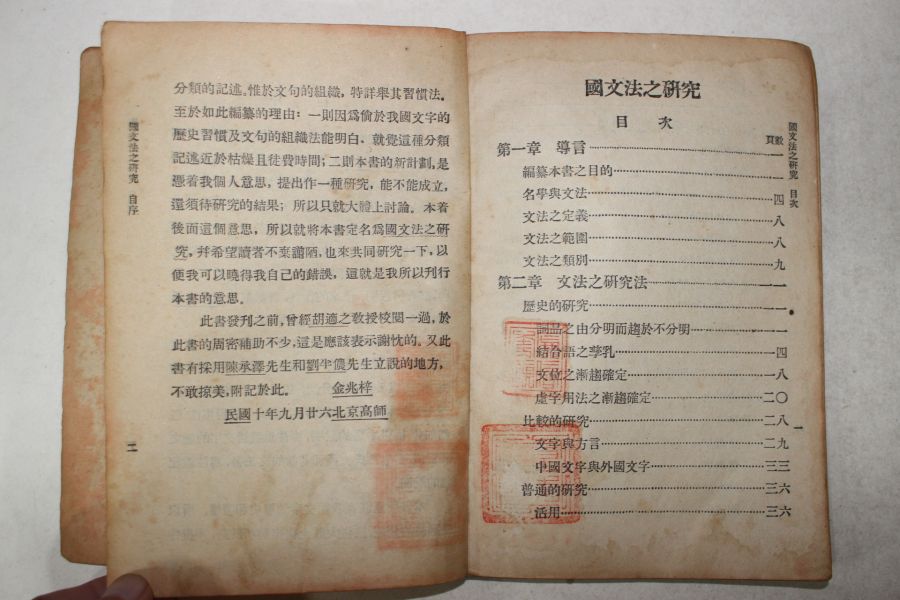 國文法之研究 自序
分類的記述。惟於文句的組織，特詳舉其習慣法。
至於如此編纂的理由：一則因爲倘於我國文字的
歷史習慣及文句的組織法能明白，就覺這種分類
記述近於枯燥且徒費時間；二則本書的新計劃，是
憑着我個人意思，提出作一種研究，能不能成立，
還須待研究的結果；所以只就大體上討論。本着
後面這個意思，所以就將本書定名爲國文法之研
究，幷希望讀者不棄謭陋，也來共同研究一下，以
便我可以曉得我自己的錯誤，這就是我所以刊行
本書的意思。
此書發刊之前，曾經胡適之敎授校閱一過，於
此書的周密補助不少，這是應該表示謝忱的。又此
書有採用陳承澤先生和劉半儂先生立說的地方，
不敢掠美，附記於此。 金兆梓
民國十年九月廿六北京高師
二
國文法之研究
目次
頁數
第一章 導言……一
編纂本書之目的……一
名學與文法……四
文法之定義……八
文法之範圍……八
文法之類別……九
第二章 文法之研究法……一一
歷史的研究……一一
詞品之由分明而趨於不分明……一一
結合語之孳乳……一四
文位之漸趨確定……一八
虛字用法之漸趨確定……二〇
比較的研究……二八
文字與方言……二九
中國文字與外國文字……三三
普通的研究……三六
活用……三六
國文法之研究 目次
一